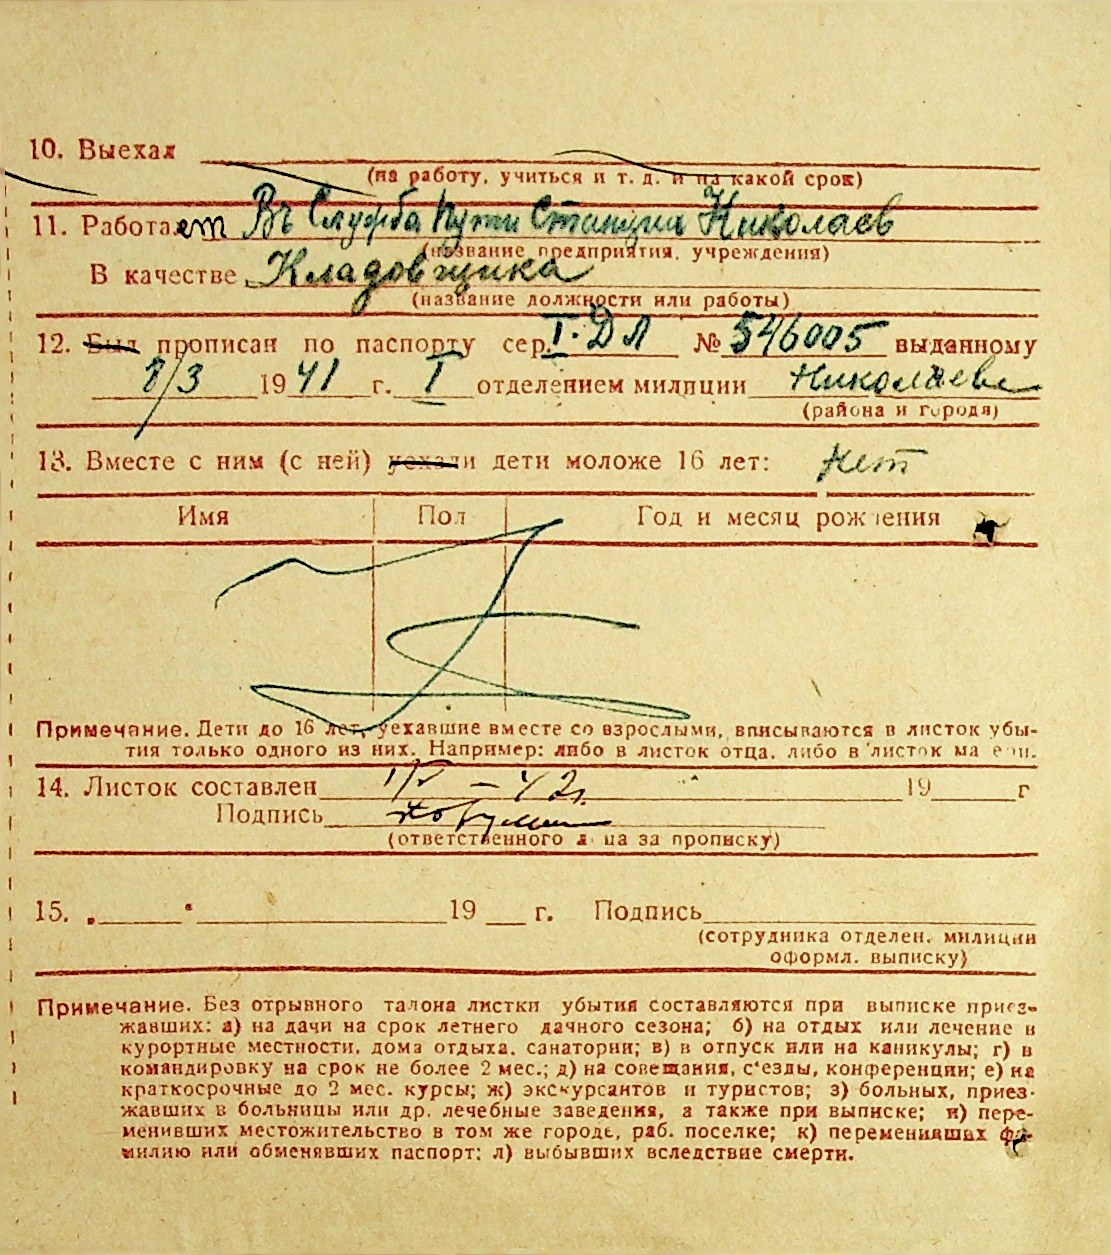 10. Выехал
(на работу, учиться и т. д. и на какой срок)
11. Работает Въ Служба пути Станции Николаев
(название предприятия, учреждения)
В качестве Кладовщика
(название должности или работы)
12. Был прописан по паспорту сер. I. ДЛ № 546005 выданному
8/3 1941 г. I отделением милиции Николаеве
(района и города)
13. Вместе с ним (с ней) уехали дети моложе 16 лет: нет
Имя Пол Год и месяц рождения
Примечание. Дети до 16 лет, уехавшие вместе со взрослыми, вписываются в листок убы-
тия только одного из них. Например: либо в листок отца, либо в листок матери.
14. Листок составлен 1/V – 42г. 19 г
Подпись
(ответственного лица за прописку)
15. „ " 19 г. Подпись
(сотрудника отделен. милиции
оформл. выписку)
Примечание. Без отрывного талона листки убытия составляются при выписке приез-
жавших: а) на дачи на срок летнего дачного сезона; б) на отдых или лечение в
курортные местности, дома отдыха, санатории; в) в отпуск или на каникулы; г) в
командировку на срок не более 2 мес.; д) на совещания, с'езды, конференции; е) на
краткосрочные до 2 мес. курсы; ж) экскурсантов и туристов; з) больных, приез-
жавших в больницы или др. лечебные заведения, а также при выписке; и) пере-
менивших местожительство в том же городе, раб. поселке; к) переменивших фа-
милию или обменявших паспорт; л) выбывших вследствие смерти.